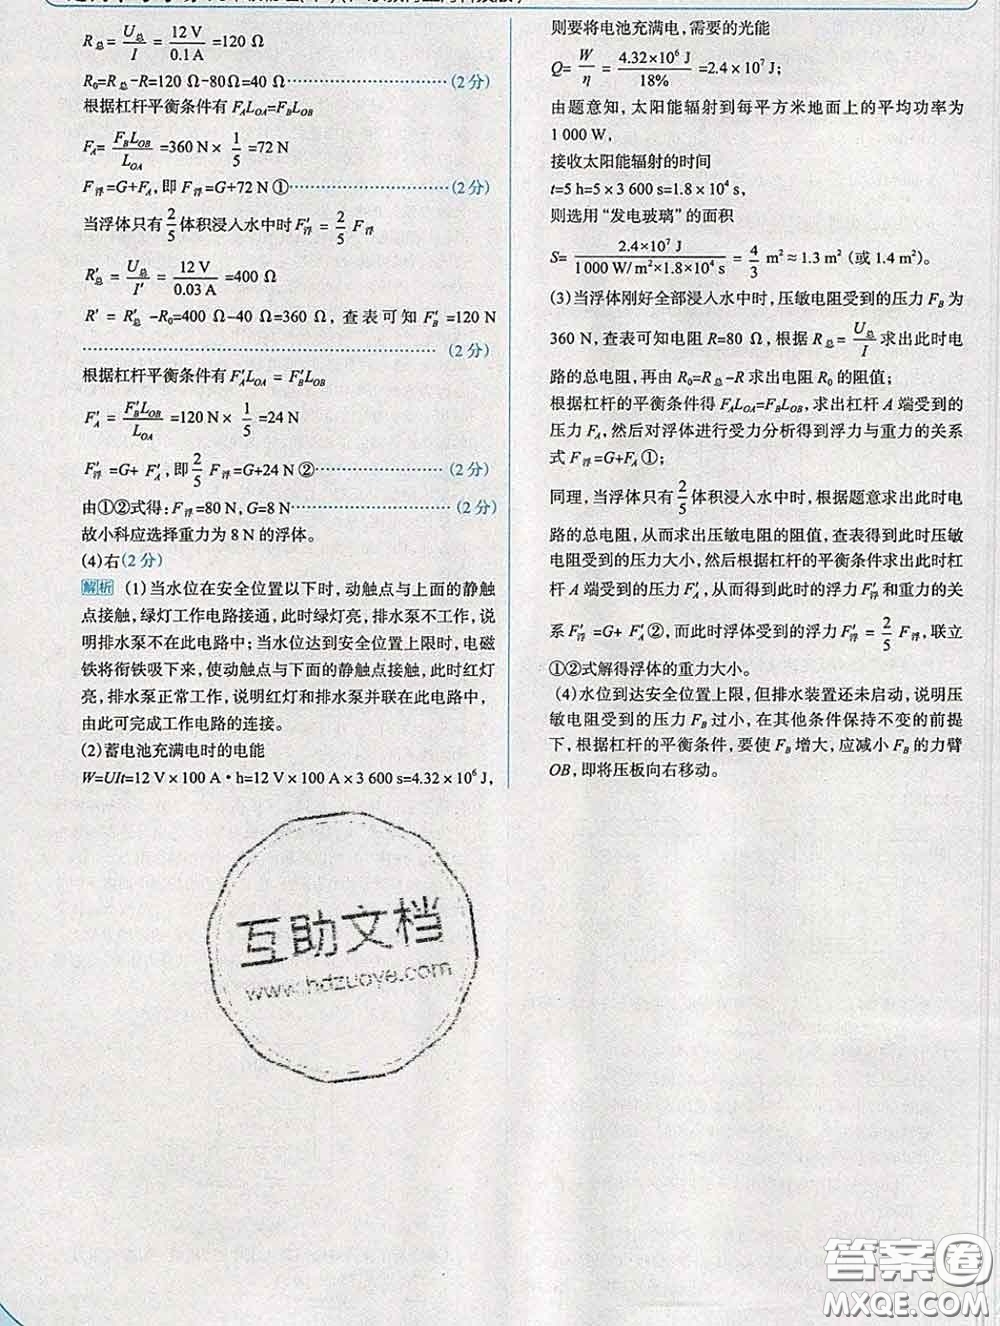 R总=U总/I=12 V/0.1 A=120 Ω
R₀=R总-R=120 Ω-80 Ω=40 Ω (2分)
根据杠杆平衡条件有 F_A L_OA=F_B L_OB
F_A=F_B L_OB/L_OA=360 N×1/5=72 N
F浮=G+F_A,即 F浮=G+72 N① (2分)
当浮体只有2/5体积浸入水中时F′浮=2/5 F浮
R′总=U总/I′=12 V/0.03 A=400 Ω
R′=R′总-R₀=400 Ω-40 Ω=360 Ω,查表可知F′_B=120 N
(2分)
根据杠杆平衡条件有F′_A L_OA=F′_B L_OB
F′_A=F′_B L_OB/L_OA=120 N×1/5=24 N
F′浮=G+F′_A,即2/5 F浮=G+24 N② (2分)
由①②式得:F浮=80 N,G=8 N (2分)
故小科应选择重力为 8 N 的浮体。
(4)右(2分)
解析 (1)当水位在安全位置以下时,动触点与上面的静触
点接触,绿灯工作电路接通,此时绿灯亮,排水泵不工作,说
明排水泵不在此电路中;当水位达到安全位置上限时,电磁
铁将衔铁吸下来,使动触点与下面的静触点接触,此时红灯
亮,排水泵正常工作,说明红灯和排水泵并联在此电路中,
由此可完成工作电路的连接。
(2)蓄电池充满电时的电能
W=UIt=12 V×100 A·h=12 V×100 A×3 600 s=4.32×10⁶ J,
则要将电池充满电,需要的光能
Q=W/η=4.32×10⁶ J/18%=2.4×10⁷ J;
由题意知,太阳能辐射到每平方米地面上的平均功率为
1 000 W,
接收太阳能辐射的时间
t=5 h=5×3 600 s=1.8×10⁴ s,
则选用“发电玻璃”的面积
S=2.4×10⁷ J/1 000 W/m²×1.8×10⁴ s=4/3 m²≈1.3 m²(或 1.4 m²)。
(3)当浮体刚好全部浸入水中时,压敏电阻受到的压力 F_B 为
360 N,查表可知电阻 R=80 Ω,根据 R总=U总/I 求出此时电
路的总电阻,再由 R₀=R总-R 求出电阻 R₀ 的阻值;
根据杠杆的平衡条件得 F_A L_OA=F_B L_OB,求出杠杆 A 端受到的
压力 F_A,然后对浮体进行受力分析得到浮力与重力的关系
式 F浮=G+F_A①;
同理,当浮体只有2/5体积浸入水中时,根据题意求出此时电
路的总电阻,从而求出压敏电阻的阻值,查表得出此时压敏
电阻受到的压力大小,然后根据杠杆的平衡条件求出此时杠
杆 A 端受到的压力 F′_A,从而得到此时的浮力 F′浮和重力的关
系 F′浮=G+F′_A②,而此时浮体受到的浮力 F′浮=2/5 F浮,联立
①②式解得浮体的重力大小。
(4)水位到达安全位置上限,但排水装置还未启动,说明压
敏电阻受到的压力 F_B 过小,在其他条件保持不变的前提
下,根据杠杆的平衡条件,要使 F_B 增大,应减小 F_B 的力臂
OB,即将压板向右移动。
互助文档
www.hdzuoye.com
答案圈
MXQE.COM